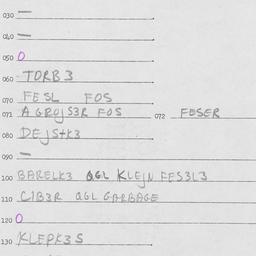 030 —
040 —
050 O
060 TORB3
070 FESL FOS
071 AGROJS3R FOS 072 FESER
080 DEJSTK3
090 —
100 BARELK3 QGL KLEJN FES3L3
110 CIB3R QGL GARBAGE
120 O
130 KLEPK3S